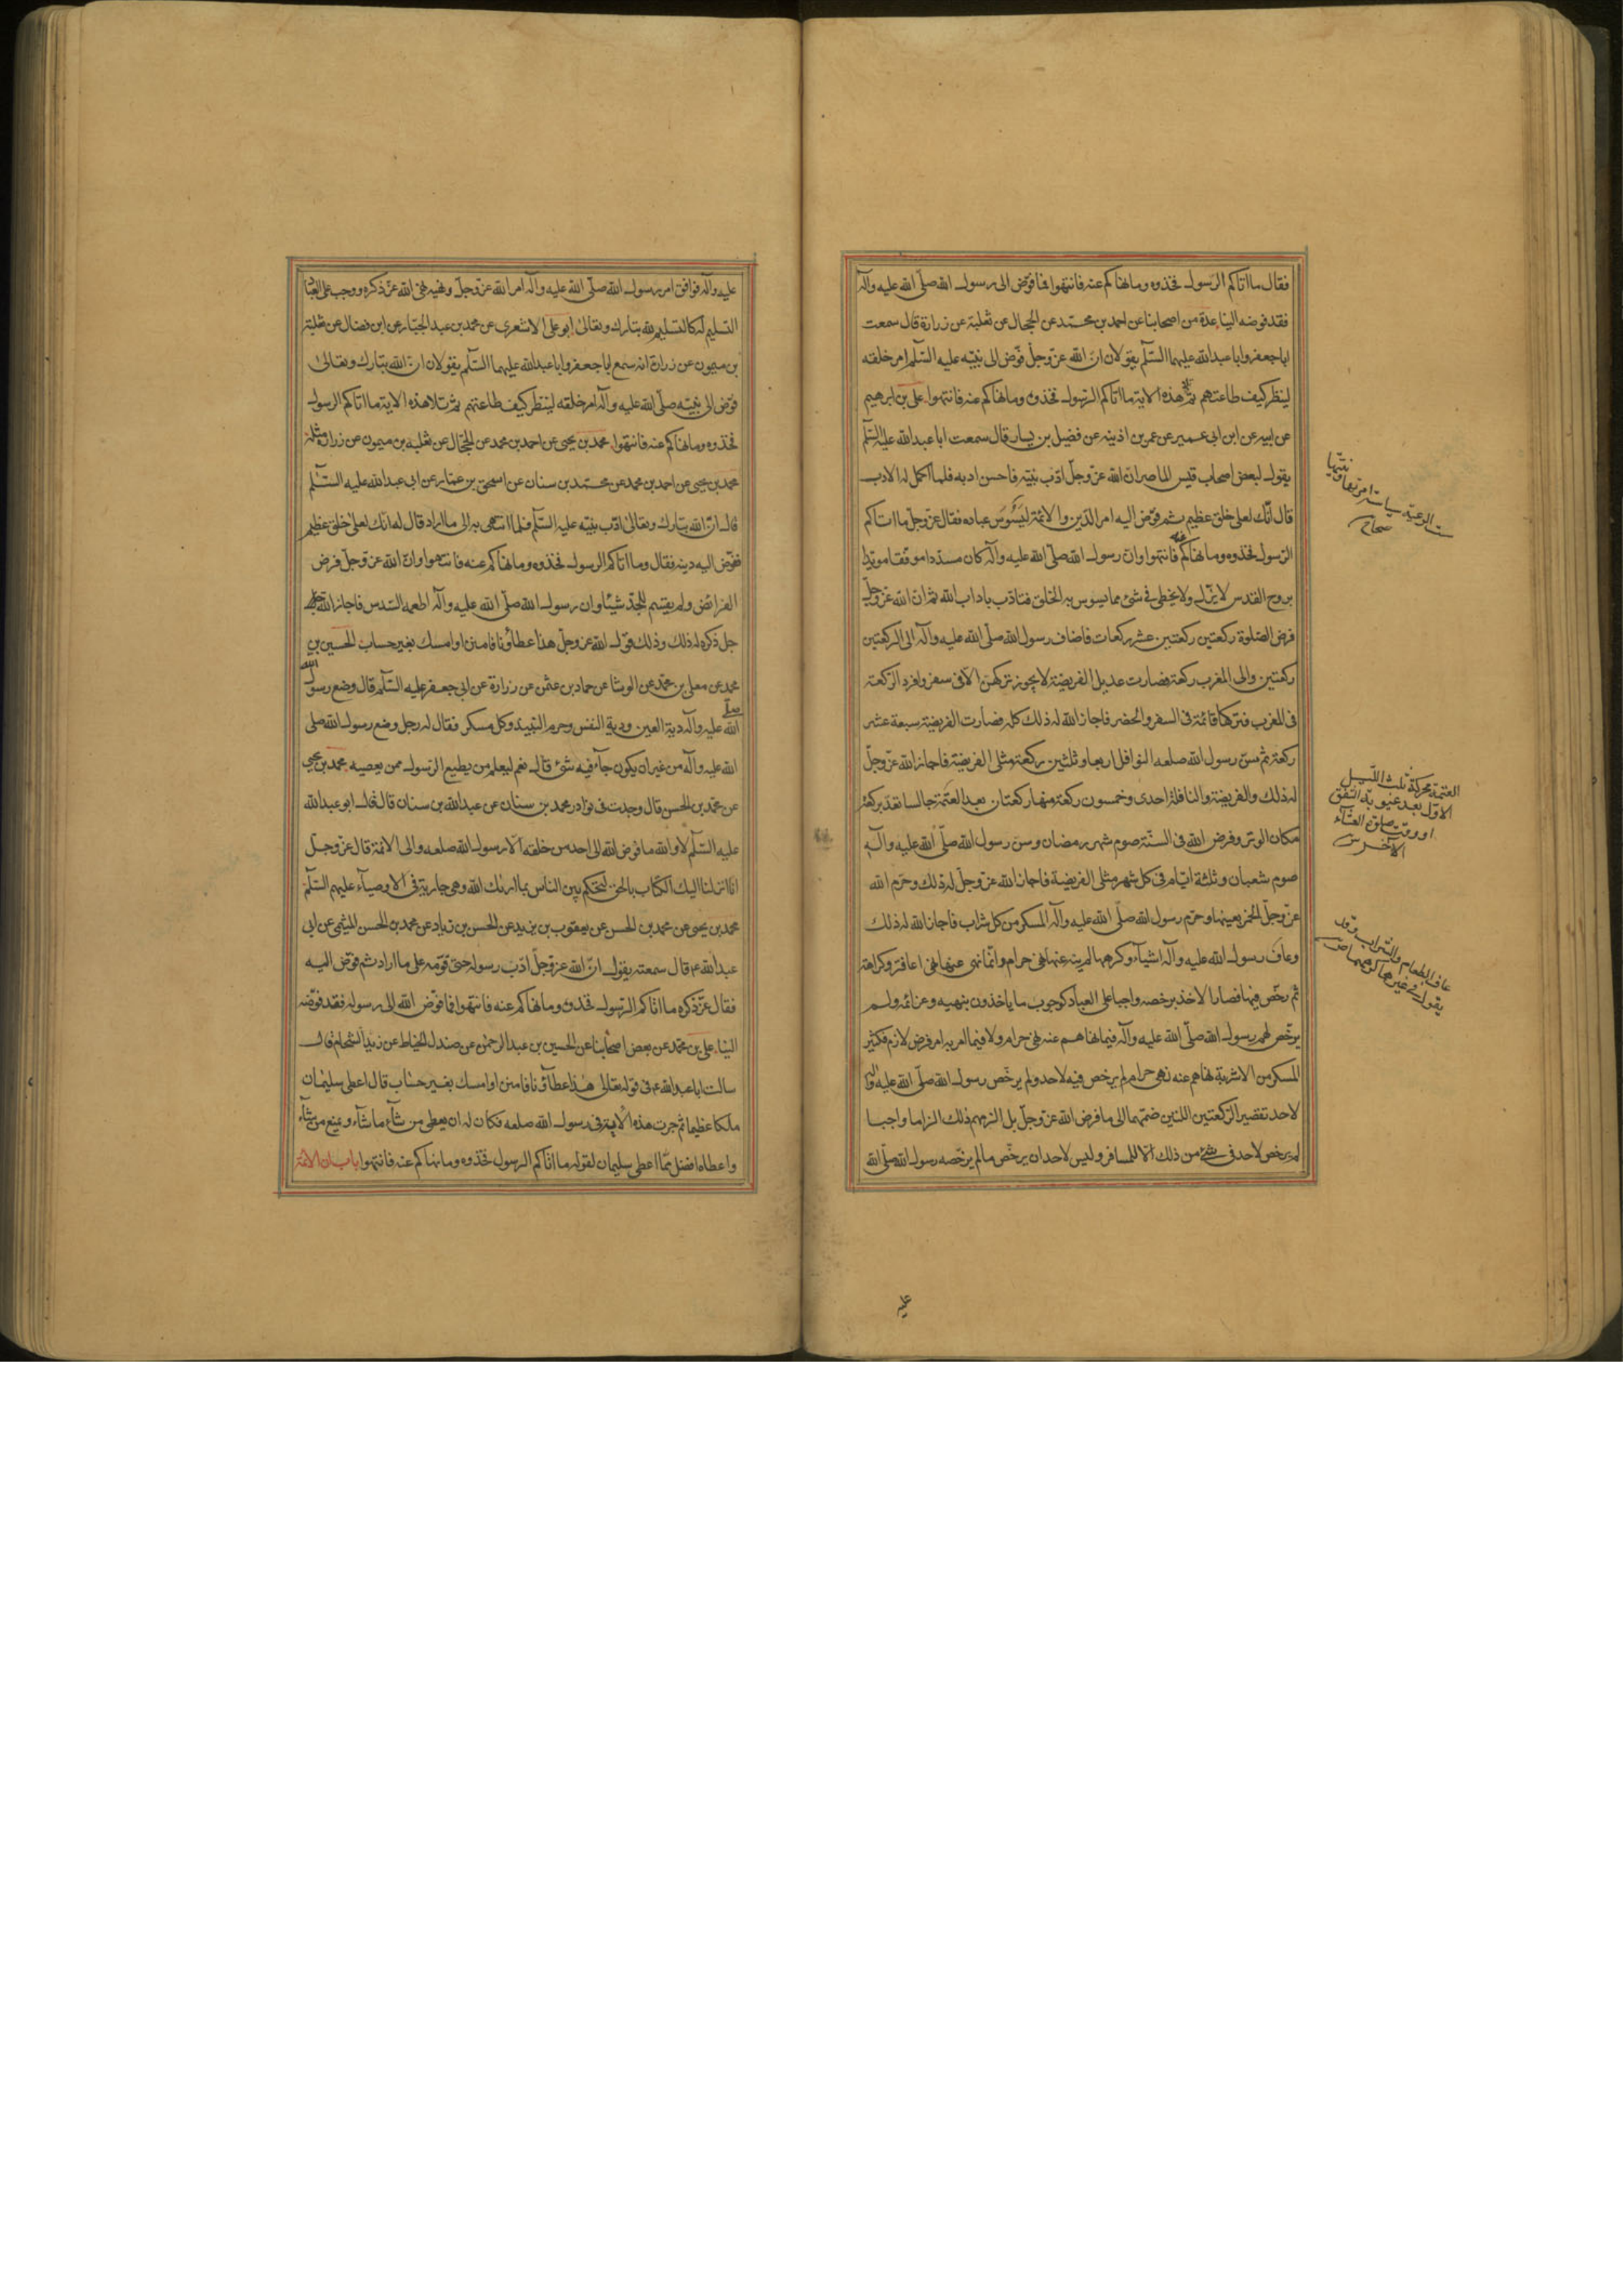 فقال ما اتاكم الرسول فخذوه وما نهاكم عنه فانتهوا فما فوّض الى رسول الله صلّى الله عليه وآله
فقد فوضه الينا عدة من اصحابنا عن احمد بن محمّد عن الحجال عن ثعلبة عن زرارة قال سمعت
اباجعفر واباعبدالله عليهما السّلم يقولان انّ الله عزّ وجلّ فوّض الى نبيّه عليه السّلم امر خلقه
لينظر كيف طاعتهم ثم تلا هذه الاية ما اتاكم الرّسول فخذوه وما نهاكم عنه فانتهوا علي بن ابرهيم
عن ابيه عن ابن ابي عمير عن عمر بن اذينه عن فضيل بن يسار قال سمعت اباعبدالله عليه السّلم
يقول لبعض اصحاب قيس الماصر ان الله عزّ وجلّ ادّب نبيّه فاحسن ادبه فلما اكمل له الادب
قال انّك لعلى خلق عظيم ثم فوّض اليه امر الدّين والائمّة ليَسُوسَ عباده فقال عزّ وجلّ ما اتاكم
الرّسول فخذوه وما نهاكم عنه فانتهوا وان رسول الله صلّى الله عليه وآله كان مسدّدا موفّقا مويدا
بروح القدس لا يزلّ ولا يخطى فى شئ مما يسوس به الخلق فتادّب باداب الله ثم ان الله عزّ وجلّ
فرض الصلوة ركعتين ركعتين عشر ركعات فاضاف رسول الله صلّى الله عليه وآله الى الركعتين
ركعتين والى المغرب ركعة فصارت عديل الفريضة لا يجوز تركهنّ الّا فى سفر وافرد الرّكعة
فى المغرب فتركها قائمة فى السفر والحضر فاجاز الله له ذلك كله فصارت الفريضة سبعة عشر
ركعة ثم سنّ رسول الله صلعم النوافل اربعا وثلثين ركعة مثلى الفريضة فاجاز الله عزّ وجلّ
له ذلك والفريضة والنافلة احدى وخمسون ركعة منها ركعتان بعد العتمة جالسا تعدّ بركعة
مكان الوتر وفرض الله فى السّنة صوم شهر رمضان وسنّ رسول الله صلّى الله عليه وآله
صوم شعبان وثلثة ايّام فى كل شهر مثلى الفريضة فاجاز الله عزّ وجلّ له ذلك وحرّم الله
عزّ وجلّ الخمر بعينها وحرّم رسول الله صلّى الله عليه وآله المسكر من كل شراب فاجاز الله له ذلك
وعاف رسول الله عليه وآله اشياء وكرهها لم ينه عنها نهى حرام وانّما نهى عنها نهى اعافة وكراهة
ثم رخّص فيها فصار الاخذ برخصه واجبا على العباد كوجوب ما ياخذون بنهيه وعزائمه ولم
يرخّص لهم رسول الله صلّى الله عليه وآله فيما نهاهم عنه نهى حرام ولا فيما امر به امر فرض لازم فكثير
المسكر من الاشربة نهاهم عنه نهى حرام لم يرخص فيه لاحد ولم يرخّص رسول الله صلّى الله عليه وآله
لاحد تقصير الرّكعتين اللتين ضمّهما الى ما فرض الله عزّ وجلّ بل الزمهم ذلك الزاما واجبا
لم يرخص لاحد فى شئ من ذلك الّا للمسافر وليس لاحد ان يرخّص ما لم يرخّصه رسول الله صلّى الله
سست الرعية سياسة امرتها ونهيتها
صحاح
العتمة محركة ثلث اللّيل
الاول بعد غيبوبة الشفق
او وقت صلوة العشاء
الآخر س
عاف الطعام والشراب وقد
يقول فى غيرهما كرههما ص
عليه
عليه وآله فوافق امر رسول الله صلّى الله عليه وآله امر الله عزّ وجلّ ونهيه نهى الله عزّ ذكره ووجب على العباد
التسليم له كالتسليم لله تبارك وتعالى ابو على الاشعرى عن محمد بن عبد الجبّار عن ابن فضال عن ثعلبة
بن ميمون عن زرارة انه سمع اباجعفر واباعبدالله عليهما السّلم يقولان ان الله تبارك وتعالى
فوّض الى نبيّه صلّى الله عليه وآله امر خلقه لينظر كيف طاعتهم ثم تلا هذه الاية ما اتاكم الرسول
فخذوه وما نهاكم عنه فانتهوا محمد بن يحيى عن احمد بن محمد عن الحجّال عن ثعلبه بن ميمون عن زرارة مثله
محمد بن يحيى عن احمد بن محمد عن محمّد بن سنان عن اسحق بن عمّار عن ابى عبدالله عليه السّلم
قال انّ الله تبارك وتعالى ادّب نبيّه عليه السّلم فلما انتهى به الى ما اراد قال له انّك لعلى خلق عظيم
ففوّض اليه دينه فقال وما اتاكم الرسول فخذوه وما نهاكم عنه فانتهوا وانّ الله عزّ وجلّ فرض
الفرائض ولم يقسم للجدّ شيئا وان رسول الله صلّى الله عليه وآله اطعمه السّدس فاجاز الله
جل ذكره له ذلك وذلك قول الله عزّ وجلّ هذا عطاؤنا فامنن او امسك بغير حساب الحسين بن
محمد عن معلى بن محمّد عن الوشا عن حماد بن عثمن عن زرارة عن ابى جعفر عليه السّلم قال وضع رسول
الله صلّى الله عليه وآله دية العين ودية النفس وحرم النبيذ وكل مسكر فقال له رجل وضع رسول الله صلى
الله عليه وآله من غير ان يكون جآء فيه شئ قال نعم ليعلم من يطيع الرّسول ممن يعصيه محمد بن يحيى
عن محمّد بن الحسن قال وجدت فى نوادر محمد بن سنان عن عبدالله بن سنان قال قال ابو عبدالله
عليه السّلم لا والله ما فوّض الله الى احد من خلقه الّا رسول الله صلعم والى الائمة قال عزّ وجلّ
انّا انزلنا اليك الكتاب بالحقّ لتحكم بين الناس بما اريك الله وهى جارية فى الاوصيآء عليهم السّلم
محمد بن يحيى عن محمد بن الحسن عن يعقوب بن يزيد عن الحسن بن زياد عن محمد بن الحسن الميثمى عن ابى
عبدالله ع قال سمعته يقول انّ الله عزّ وجلّ ادّب رسوله حتى قوّمه على ما اراد ثم فوّض اليه
فقال عزّ ذكره ما اتاكم الرّسول فخذوه وما نهاكم عنه فانتهوا فما فوّض الله الى رسوله فقد فوّضه
الينا على بن محمّد عن بعض اصحابنا عن الحسين بن عبد الرحمن عن صندل الخياط عن زيد الشحام قال
سالت اباعبدالله ع فى قوله تعالى هذا عطاؤنا فامنن او امسك بغير حساب قال اعطى سليمان
ملكا عظيما ثم جرت هذه الاية فى رسول الله صلعم فكان له ان يعطى من شآء ما شآء ويمنع من شآء
واعطاه افضل ممّا اعطى سليمان لقوله ما اتاكم الرسول فخذوه وما نهاكم عنه فانتهوا باب ان الائمّة